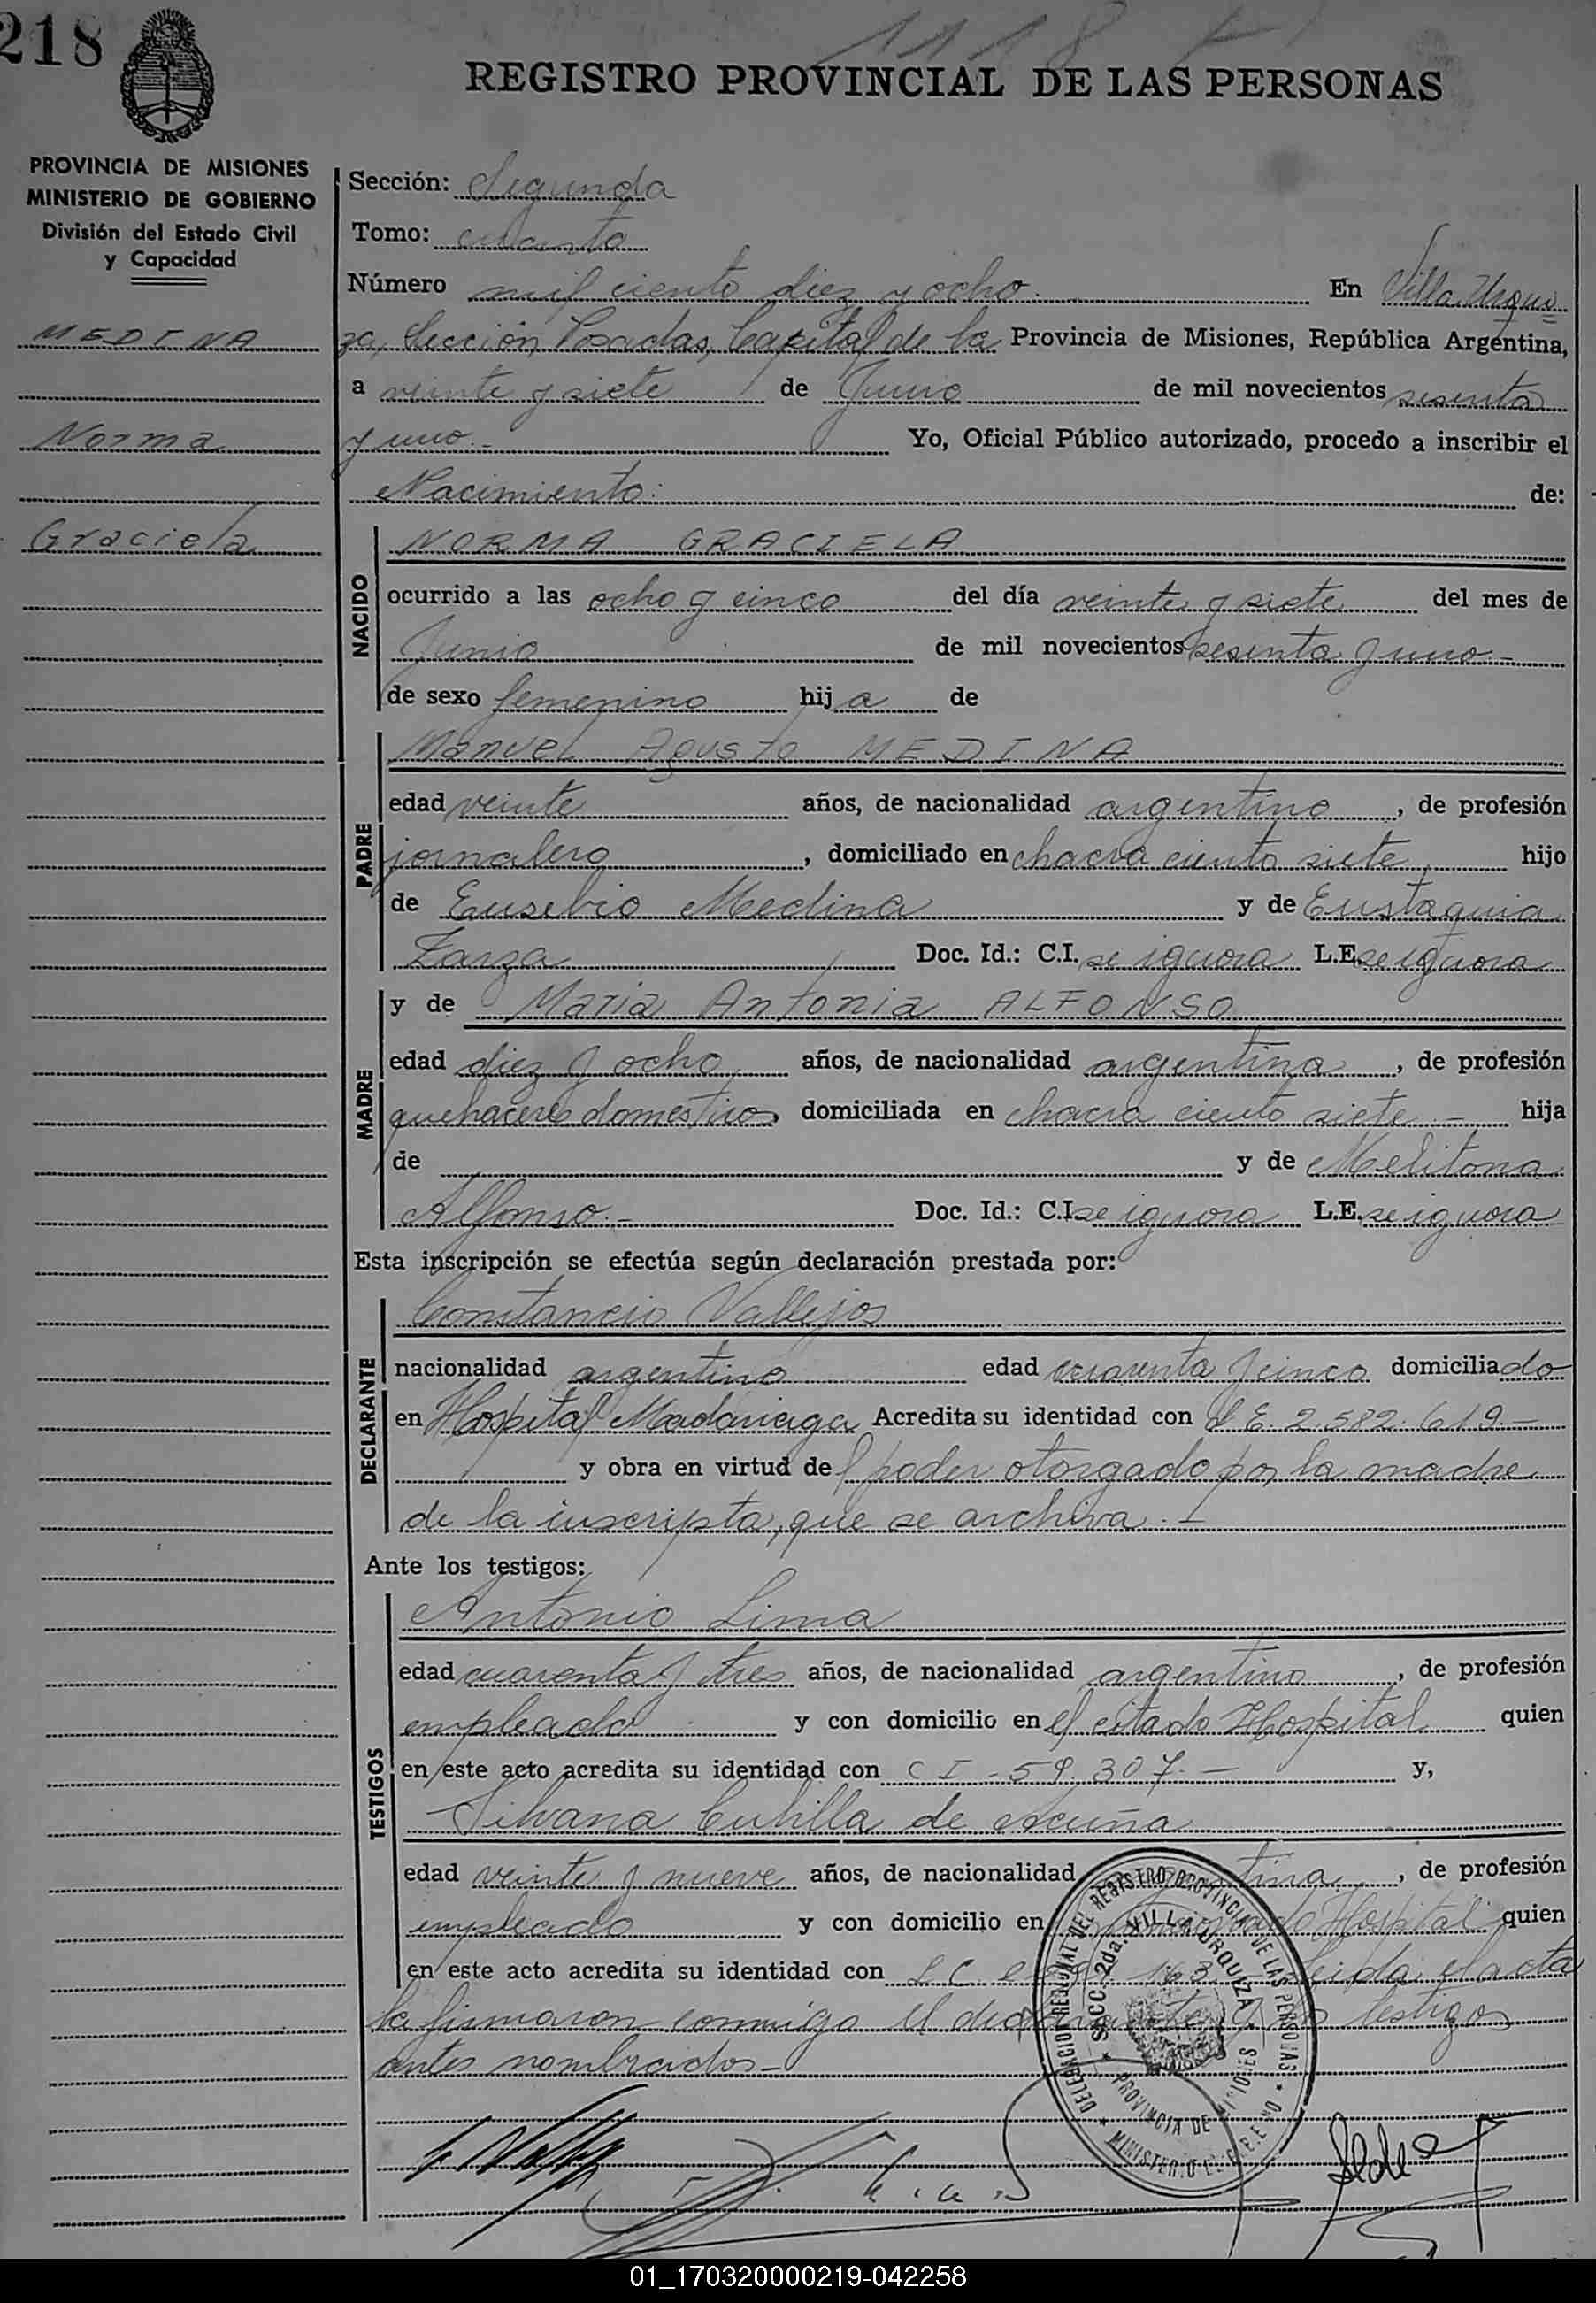 218
1118
REGISTRO PROVINCIAL DE LAS PERSONAS
PROVINCIA DE MISIONES
MINISTERIO DE GOBIERNO
División del Estado Civil
y Capacidad
MEDINA
Norma
Graciela
Sección: Segunda
Tomo: cuarto
Número mil ciento diez y ocho.- En Villa Urqui
za, Sección Posadas, Capital de la Provincia de Misiones, República Argentina,
a veinte y siete de Junio de mil novecientos sesenta
y uno.- Yo, Oficial Público autorizado, procedo a inscribir el
Nacimiento: de:
NACIDO
NORMA GRACIELA
ocurrido a las ocho y cinco del día veinte y siete del mes de
Junio de mil novecientos sesenta y uno.-
de sexo femenino hija de
PADRE
Manuel Agusto MEDINA
edad veinte años, de nacionalidad argentino, de profesión
jornalero, domiciliado en chacra ciento siete, hijo
de Eusebio Medina y de Eustaquia
Zarza Doc. Id.: C.I. se ignora L.E. se ignora
MADRE
y de Maria Antonia ALFONSO
edad diez y ocho años, de nacionalidad argentina, de profesión
quehaceres domesticos, domiciliada en chacra ciento siete.- hija
de y de Melitona
Alfonso.- Doc. Id.: C.I. se ignora L.E. se ignora
Esta inscripción se efectúa según declaración prestada por:
DECLARANTE
Constancio Vallejos
nacionalidad argentino edad cuarenta y cinco domiciliado
en Hospital Madariaga Acredita su identidad con L E. 2.582.619.-
y obra en virtud del poder otorgado por la madre
de la inscripta, que se archiva.-
Ante los testigos:
TESTIGOS
Antonio Lima
edad cuarenta y tres años, de nacionalidad argentino, de profesión
empleado y con domicilio en el citado Hospital quien
en este acto acredita su identidad con C I - 59.307.- y,
Silvana Cubilla de Acuña
edad veinte y nueve años, de nacionalidad argentina, de profesión
empleado y con domicilio en Hospital quien
en este acto acredita su identidad con L C Leida el acta
la firmaron conmigo el declarante y los testigos
antes nombrados.-
DELEGACION REGIONAL DEL REGISTRO PROVINCIAL DE LAS PERSONAS
SECC. 2da. VILLA URQUIZA
PROVINCIA DE MISIONES
MINISTERIO DE GOBIERNO
01_170320000219-042258